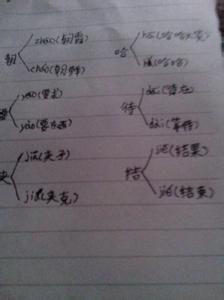 朝 zhāo(朝霞)
cháo(朝鲜)
哈 hā(哈哈大笑)
hǎ(哈
要 yāo(要求)
yào(要东西)
待 dāi(待在
dài(等待)
夹 jiā(夹子)
jiá(夹克)
结 jiē(结果)
jié(结束)